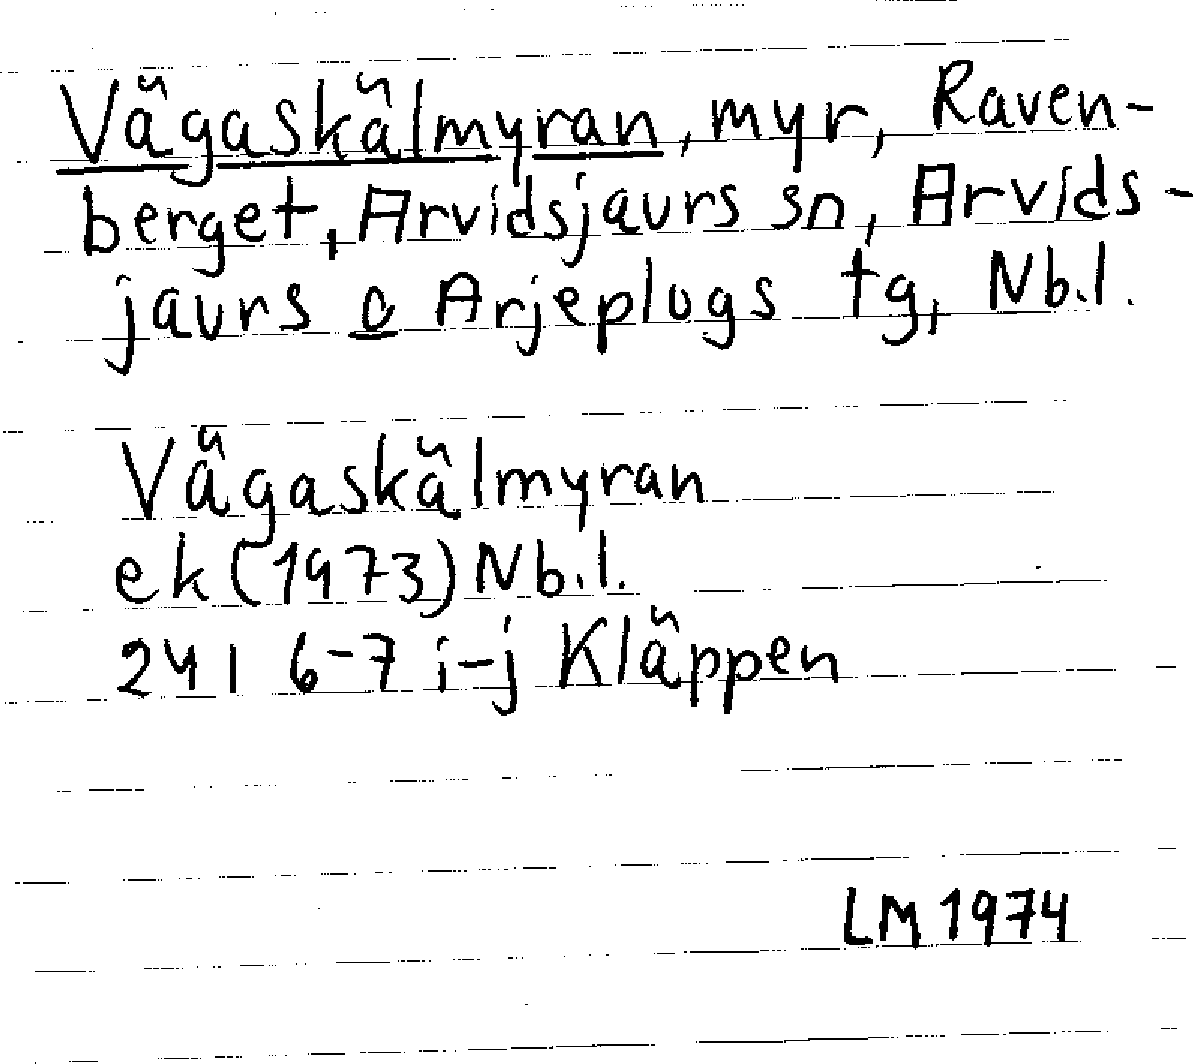 Vägaskälmyran, myr, Raven-
berget, Arvidsjaurs sn, Arvids-
jaurs o Arjeplogs tg, Nb.l.
Vägaskälmyran
ek (1973) Nb.l.
24I 6-7 i-j Kläppen
LM 1974